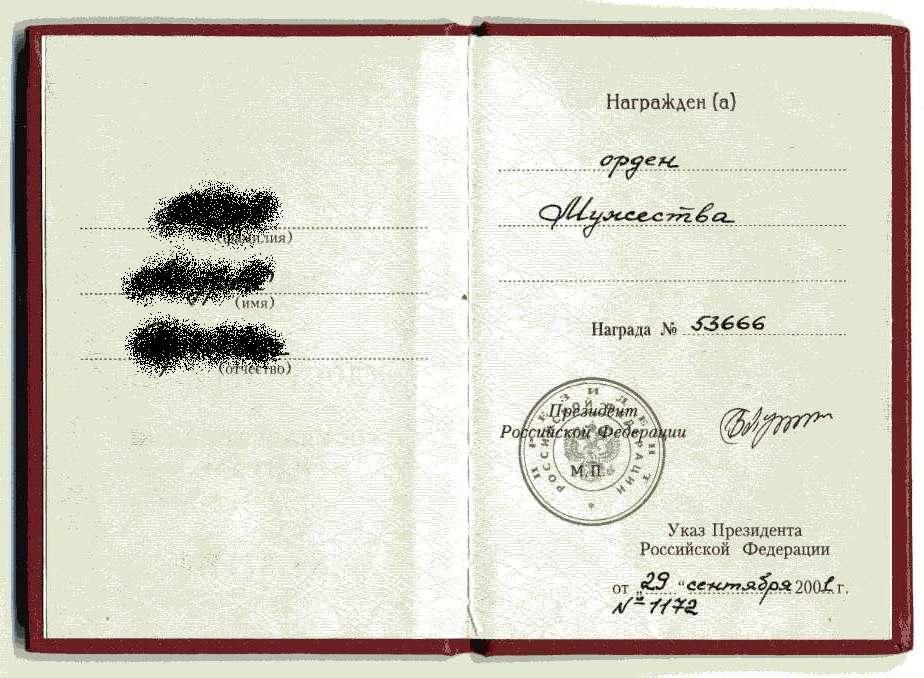 (фамилия)
(имя)
(отчество)
Награжден (а)
орден
Мужества
Награда № 53666
Президент
Российской Федерации
М.П.
ПРЕЗИДЕНТ
РОССИЙСКОЙ ФЕДЕРАЦИИ
Указ Президента
Российской Федерации
от „29 “ сентября 2001 г.
№ 1172